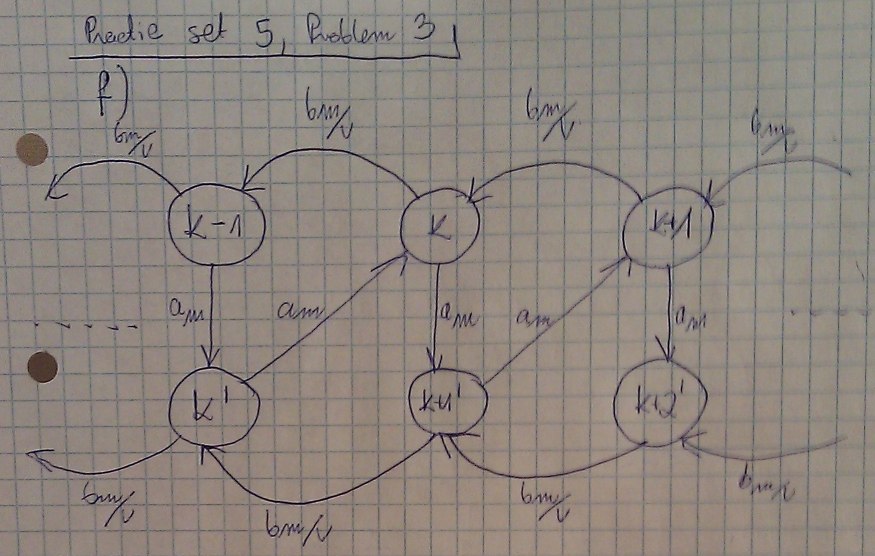 Practic set 5, Problem 3
f)
bm/v bm/v bm/v bm/v
k-1 k k+1
am am am am am
k' k+1' k+2'
bm/v bm/v bm/v bm/v